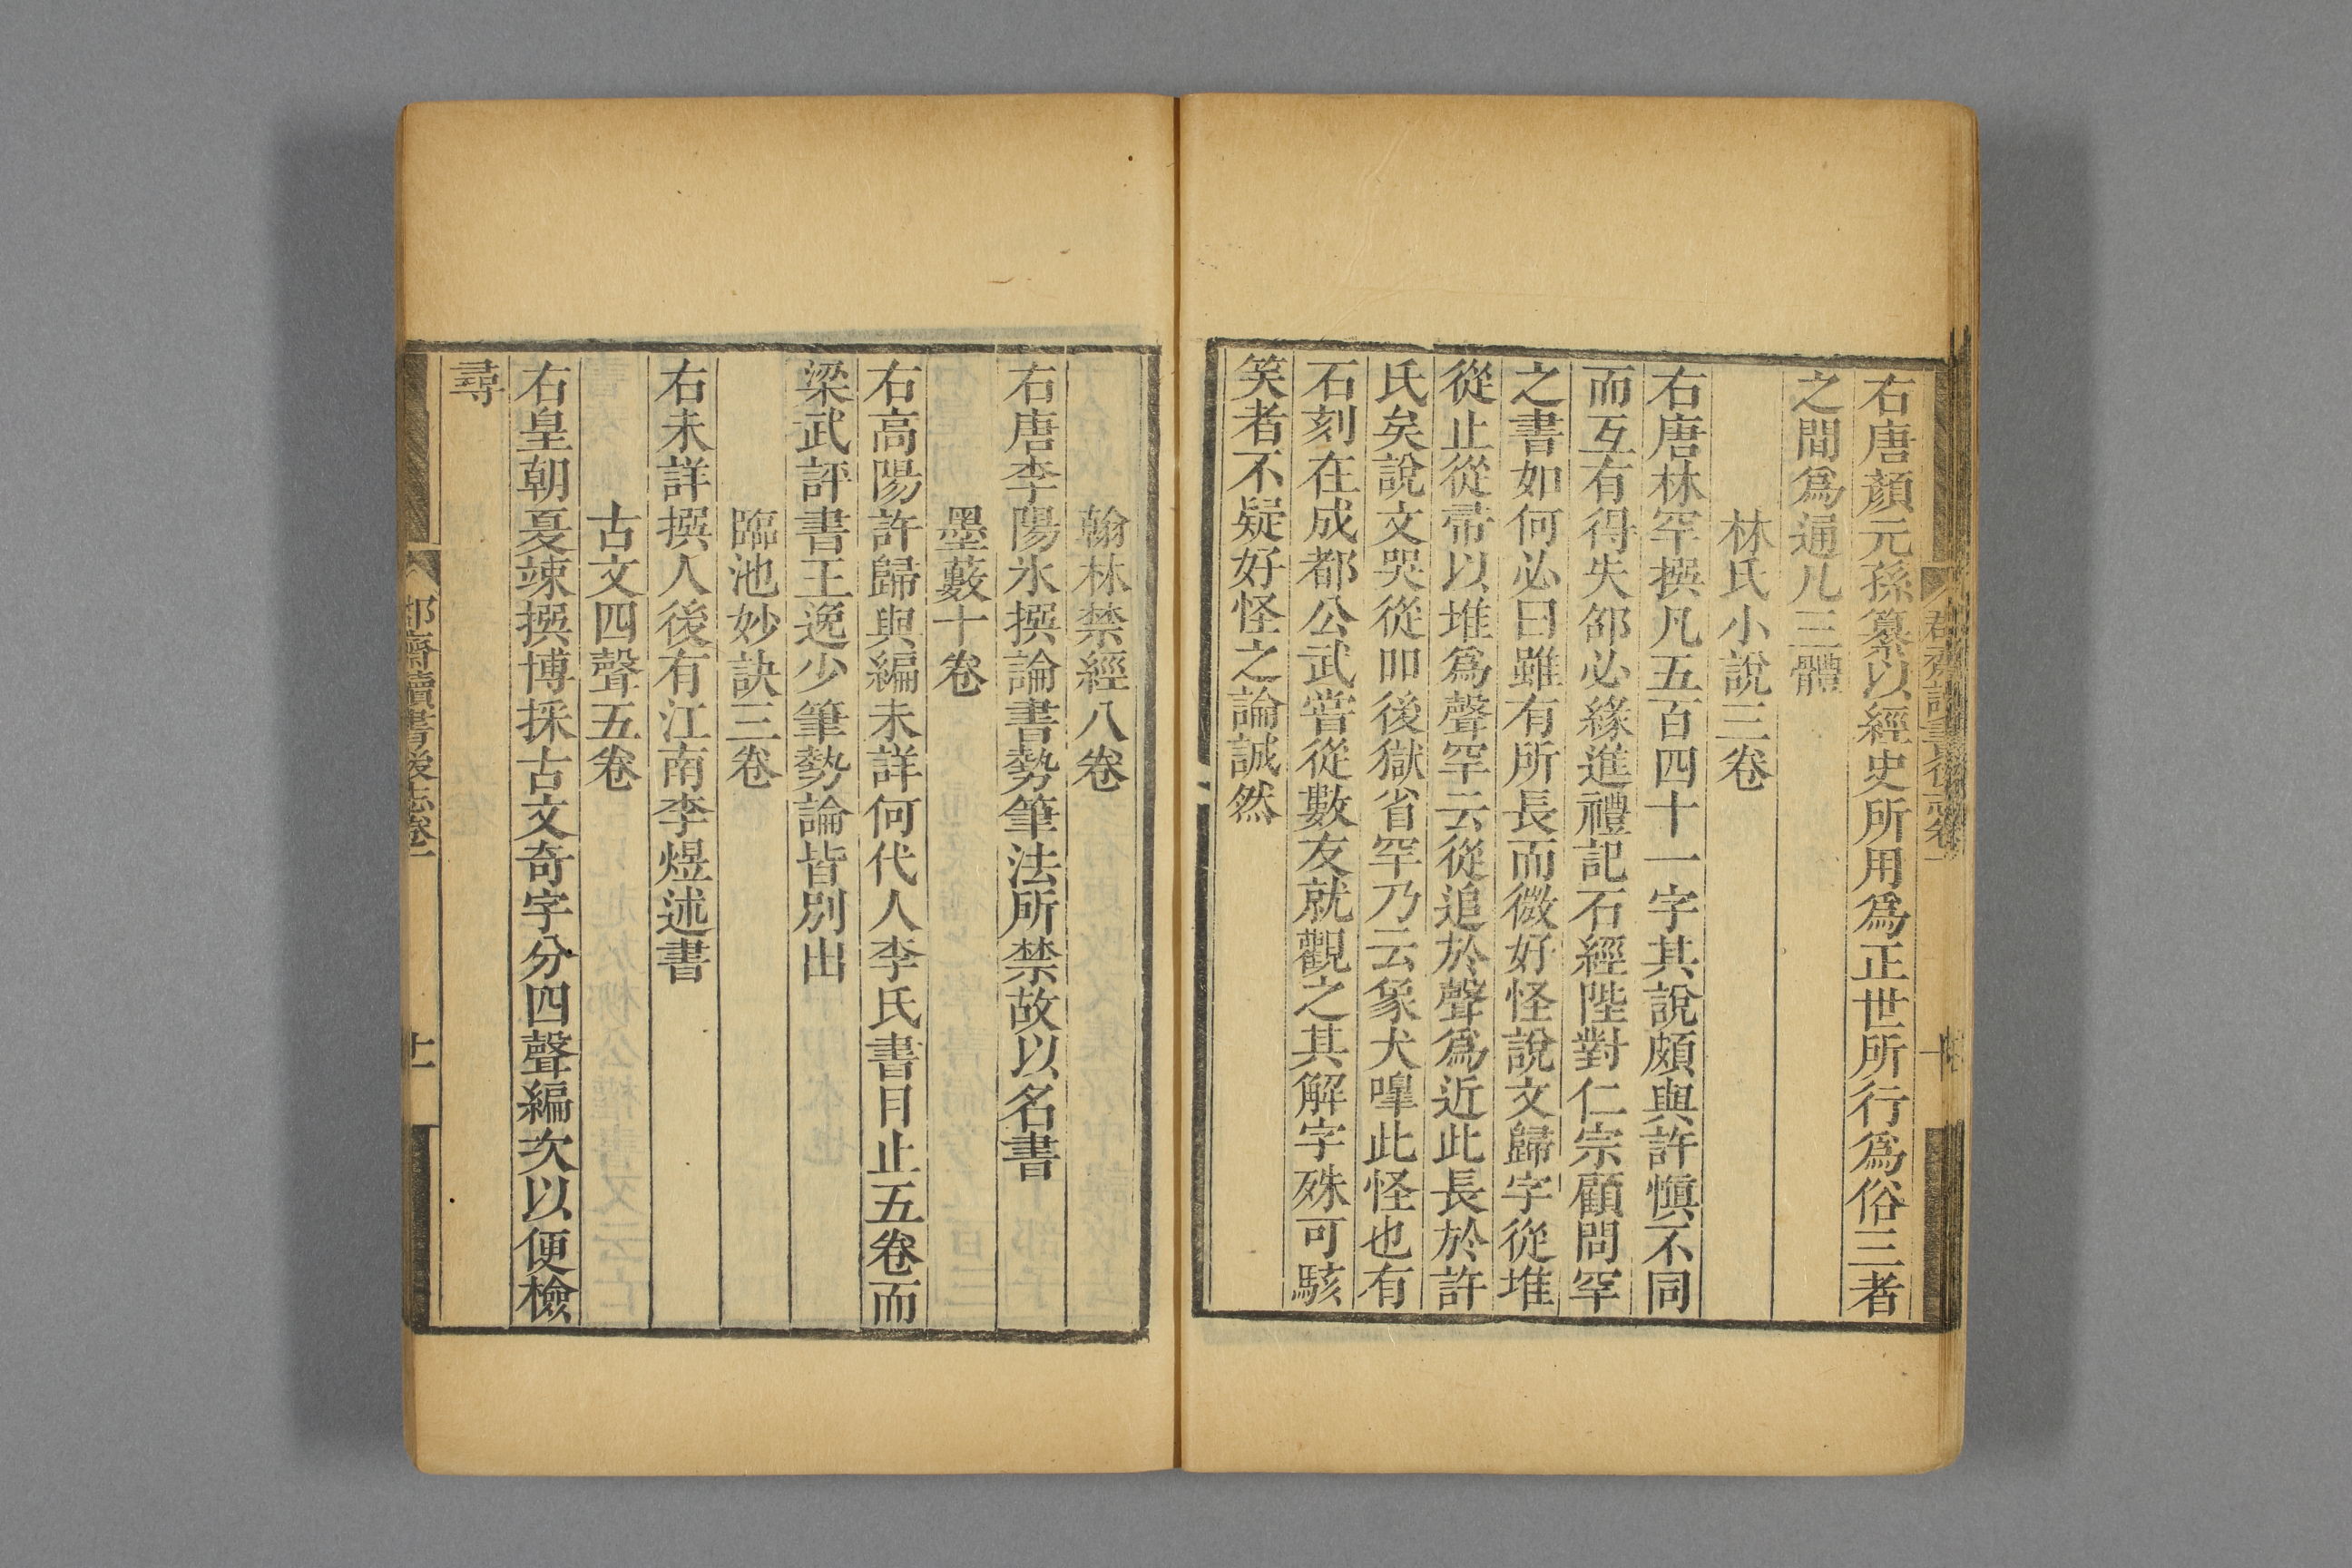 右唐顏元孫纂以經史所用爲正世所行爲俗三者
之間爲通凡三體
林氏小說三卷
右唐林罕撰凡五百四十一字其說頗與許慎不同
而互有得失邵必緣進禮記石經陛對仁宗顧問罕
之書如何必曰雖有所長而微好怪說文歸字從堆
從止從帚以堆爲聲罕云從追於聲爲近此長於許
氏矣說文哭從吅從獄省罕乃云象犬嘷此怪也有
石刻在成都公武嘗從數友就觀之其解字殊可駭
笑者不疑好怪之論誠然
翰林禁經八卷
右唐李陽冰撰論書勢筆法所禁故以名書
墨藪十卷
右高陽許歸與編未詳何代人李氏書目止五卷而
梁武評書王逸少筆勢論皆別出
臨池妙訣三卷
右未詳撰人後有江南李煜述書
古文四聲五卷
右皇朝夏竦撰博採古文奇字分四聲編次以便檢
尋
郡齋讀書後志卷一
十一